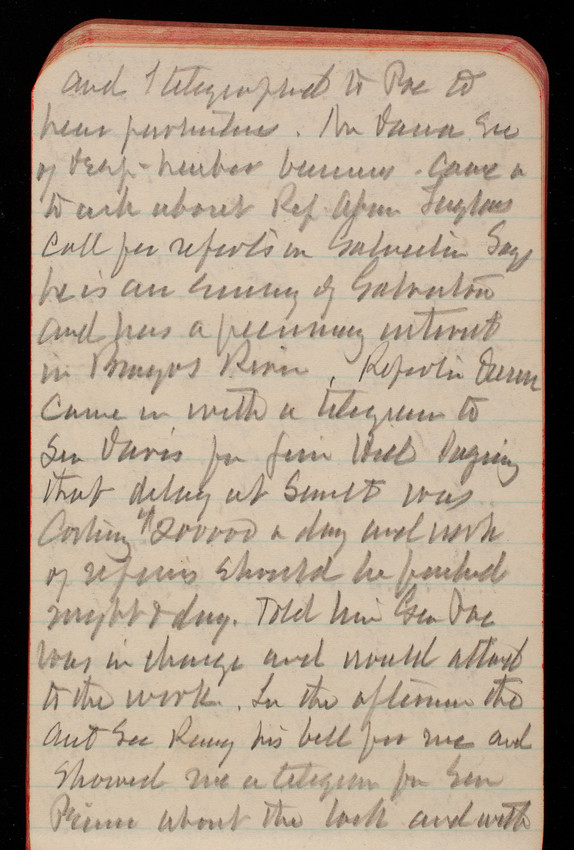 and I telegraphed to Poe to
hear particulars. Mr Dana Sec
of deep-harbor business. came in
to ask about Rep
call for reports on Galveston Says
he is an enemy of Galveston
and has a pecuniary interest
in Brazos River. Reporter
came in with a telegram to
Sen Davis fr Jim Hill saying
that delay at Sault was
costing $20000 a day and work
of repairs should be pushed
night & day. Told him Gen Poe
was in charge and would attend
to the work. In the afternoon the
Act Sec Rang his bell for me and
showed me a telegram fr Gen
about the lock and with